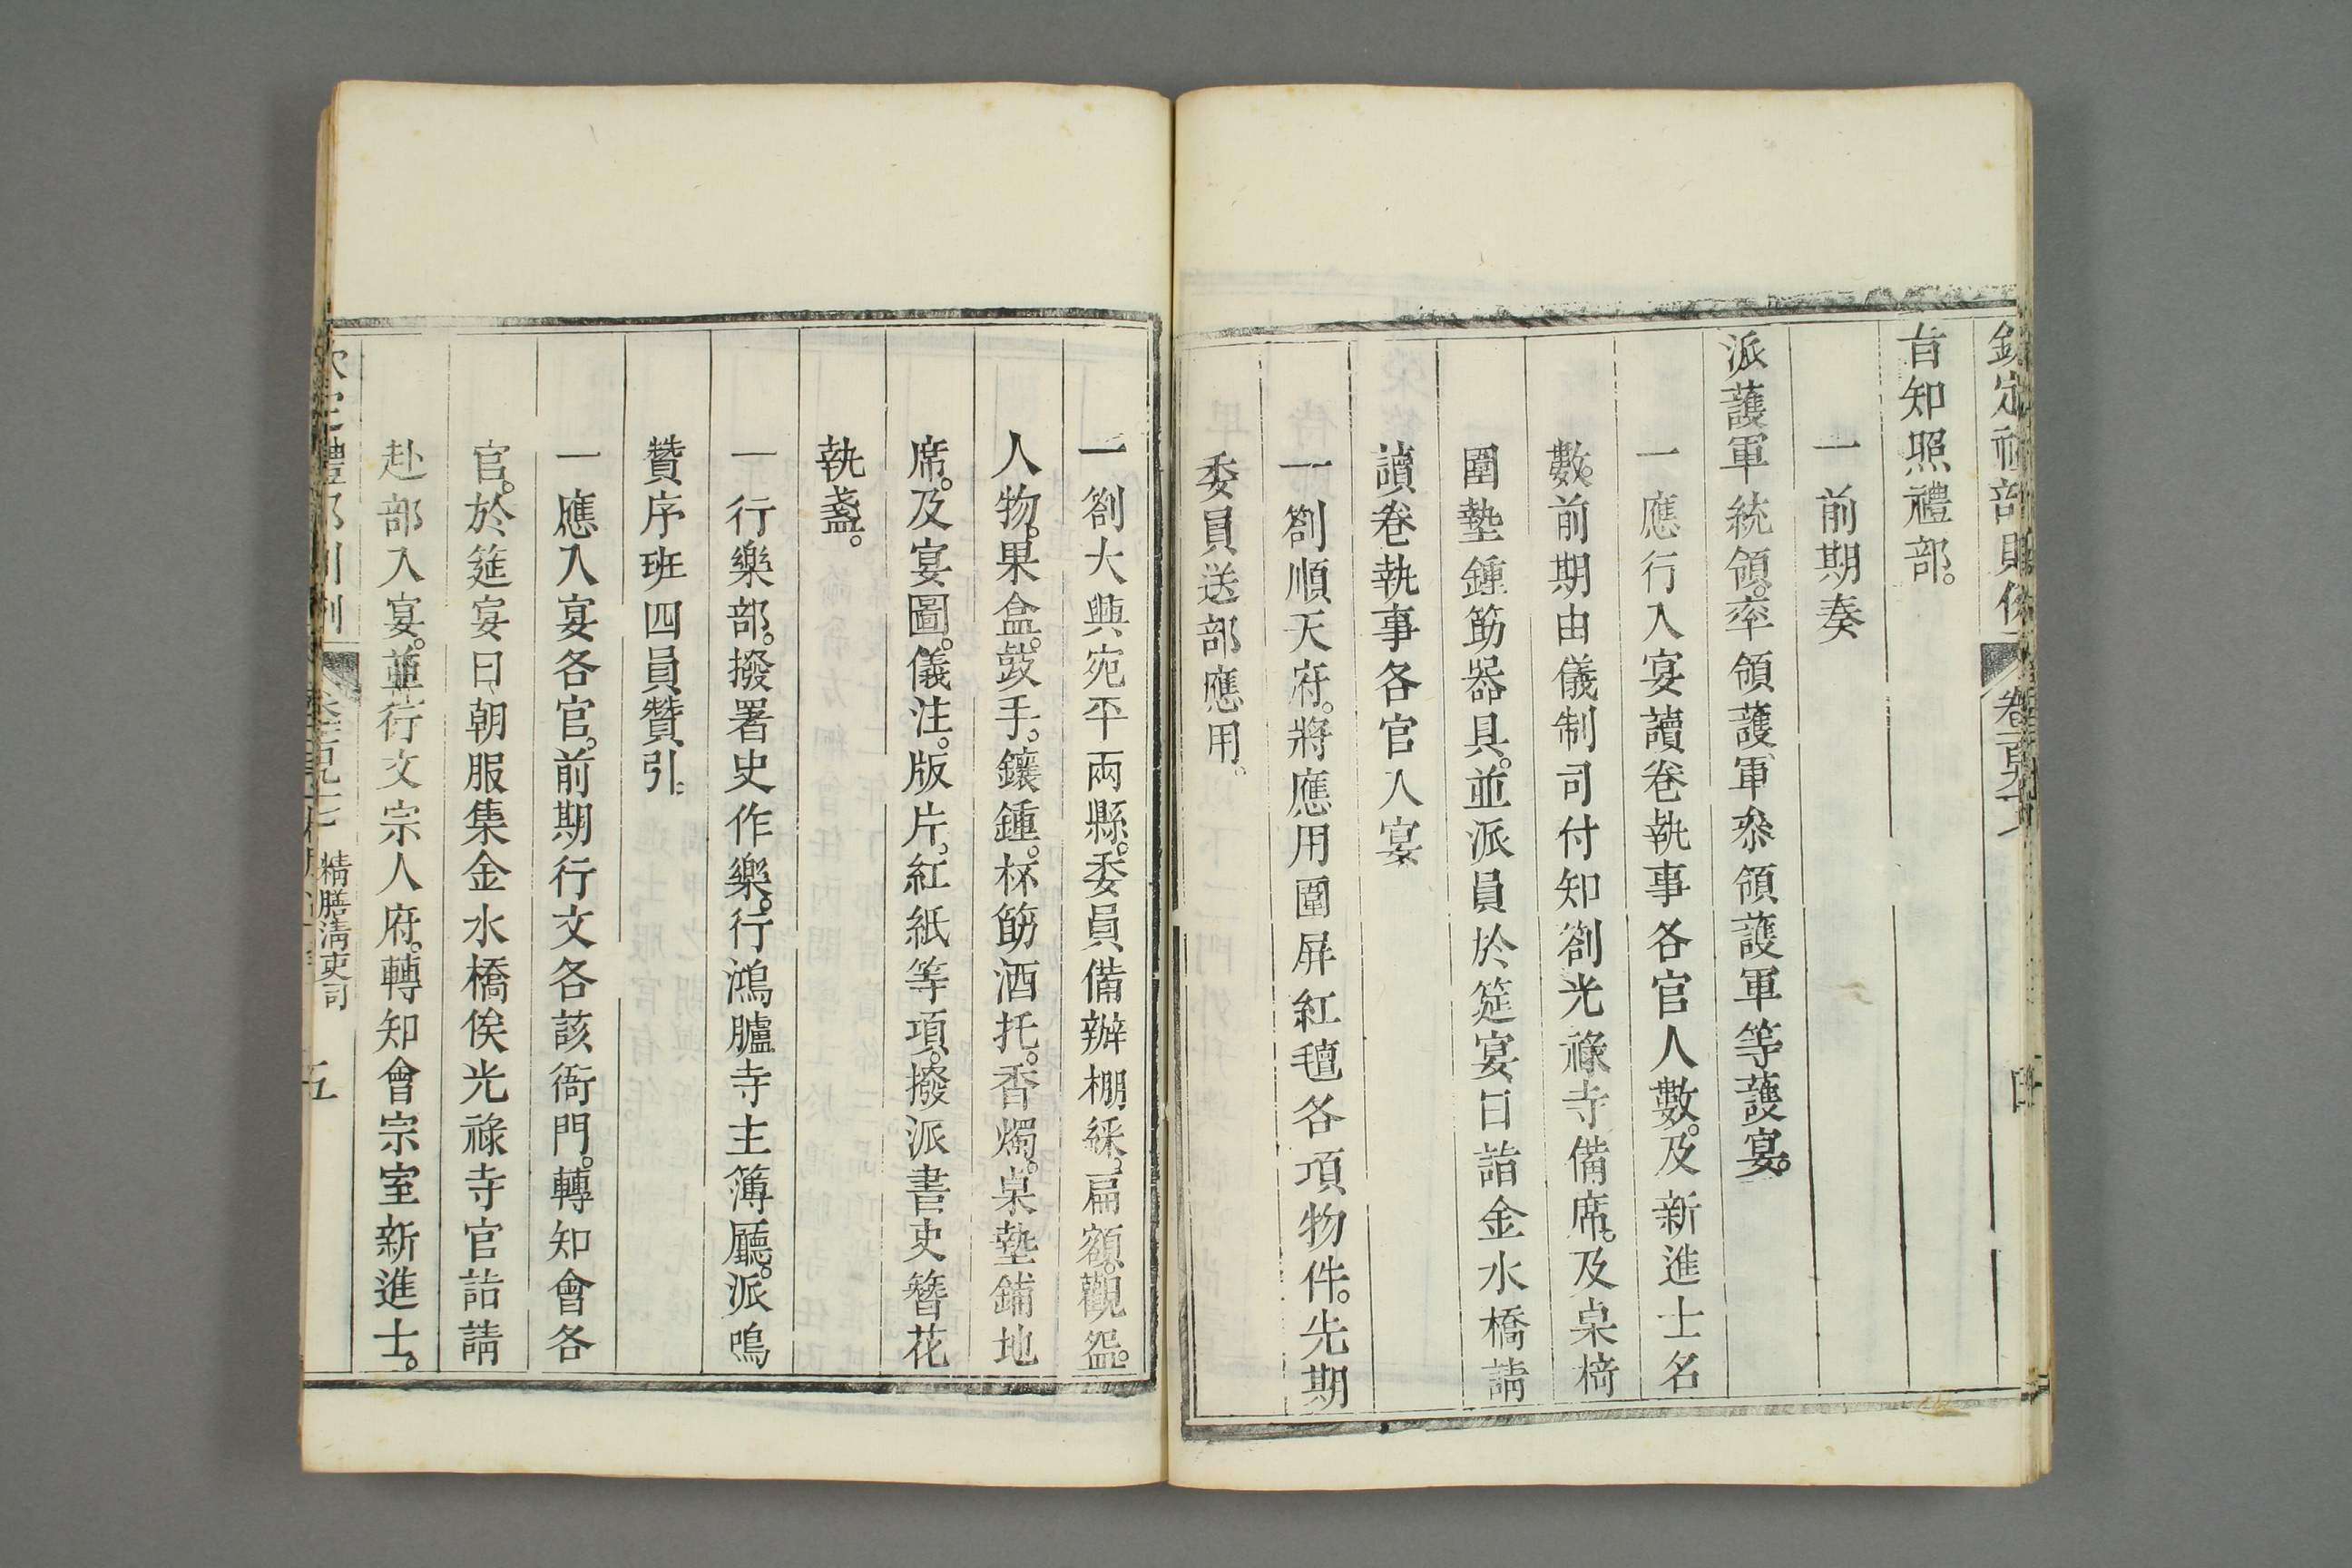 欽定禮部則例
卷一百九十七
四
旨知照禮部。
一前期奏
派護軍統領。率領護軍叅領護軍等護宴。
一應行入宴讀卷執事各官人數。及新進士名
數。前期由儀制司付知劄光祿寺備席。及桌椅
圍墊鍾筯器具。並派員於筵宴日詣金水橋請
讀卷執事各官入宴
一劄順天府。將應用圍屏紅氊各項物件。先期
委員送部應用。
一劄大興宛平兩縣。委員備辦棚綵。扁額。觀盌。
人物。果盒。鼓手。鑲鍾。杯筯酒托。香燭。桌墊鋪地
席。及宴圖。儀注。版片。紅紙等項。撥派書吏簪花
執盞。
一行樂部。撥署史作樂。行鴻臚寺主簿廳。派鳴
贊序班四員贊引。
一應入宴各官。前期行文各該衙門。轉知會各
官。於筵宴日朝服集金水橋俟光祿寺官詣請
赴部入宴。並行文宗人府。轉知會宗室新進士。
欽定禮部則例
精膳清吏司
五